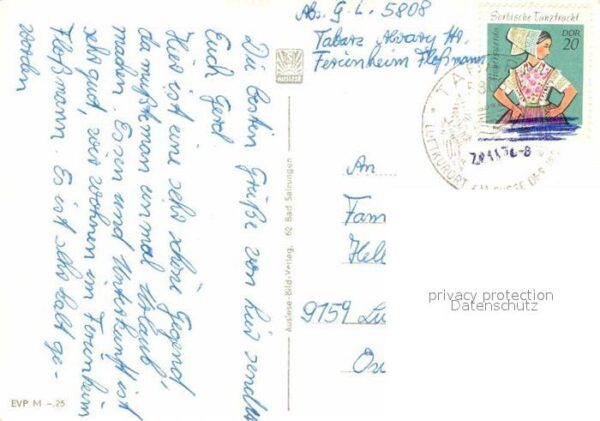 Abs. G. L. 5808
Tabarz
Ferienheim Floßmann
Die besten Grüße von hier sendet
Euch Gerd.
Hier ist eine sehr schöne Gegend
da müßte man einmal Urlaub
machen. Essen und Unterkunft ist
sehr gut, wir wohnen im Ferienheim
Floßmann. Es ist sehr kalt ge-
worden
AUSLESE
Auslese-Bild-Verlag, 62 Bad Salzungen
EVP M -.25
Sorbische Tanztracht
Hoyerswerda
DDR
20
TA
LUFTKURORT AM
-8
An
Fam
Hel
9159 Lu
privacy protection
Datenschutz